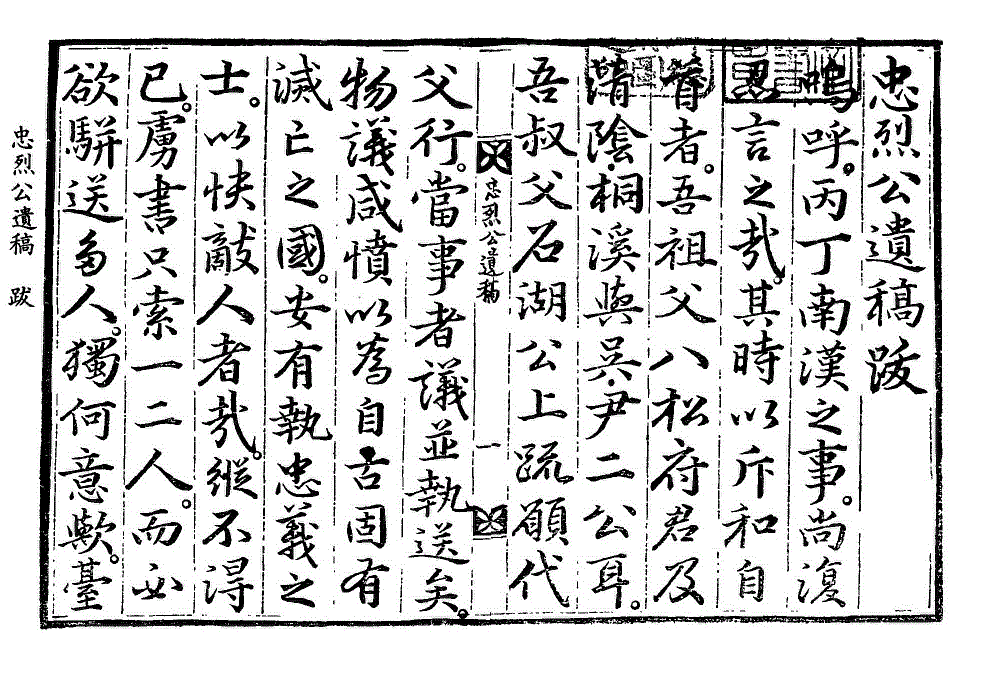 忠烈公遺稿跋
嗚呼。丙丁南漢之事。尚復
忍言之哉。其時以斥和自
者。吾祖父八松府君及
清陰桐溪與吳尹二公耳。
吾叔父石湖公上疏願代
忠烈公遺稿 一
父行。當事者議並執送矣。
物議咸憤以為自古固有
滅亡之國。安有執忠義之
士。以快敵人者哉。縱不得
已。虜書只索一二人。而必
欲騈送多人。獨何意歟。臺
忠烈公遺稿 跋